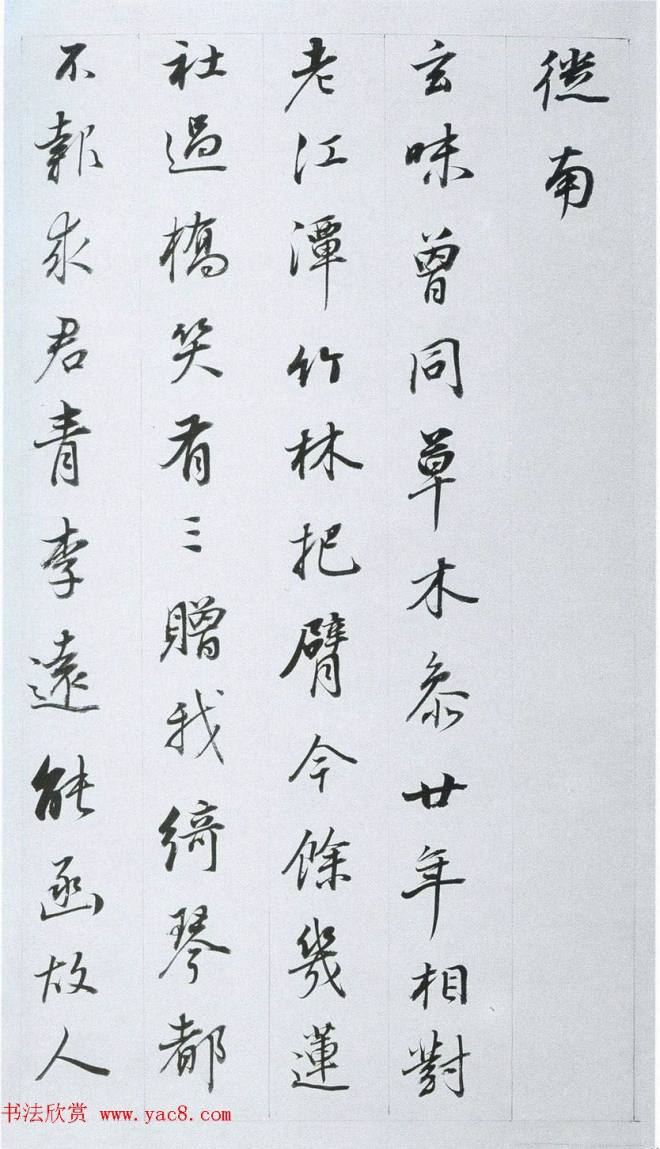 徙南
玄味曾同草木参廿年相對
老江潭竹林把臂今餘幾蓮
社過橋笑有三贈我綺琴都
不報求君青李遠能函故人
书法欣赏 www.yac8.com